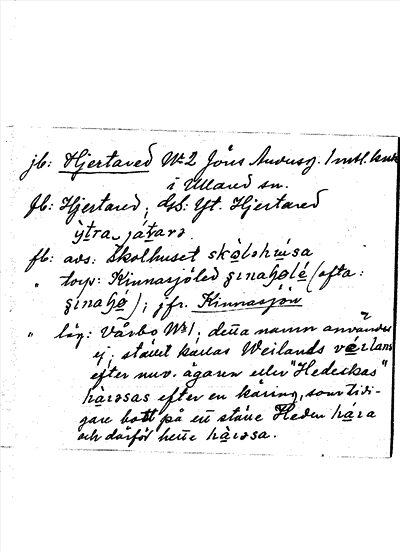 jb: Hjertared No 2 Jöns Andersg. 1 mtl.
i Ullared sn.
fb: Hjertared; dsb: Yt. Hjertared
ỳtra játarə
fb: avs: Skolhuset skòlshúsa
" torp: Kinnasjöled (ofta:
); jfr. Kinnasjön
" läg: Vårbo No 1; detta namn användes
ej; stället kallas Weilands vérlans
efter nuv. ägaren eller "Hedeckas"
hàrəsas efter en käring, som tidi-
gare bott på ett ställe Heden
och därför hette hàrəsa.